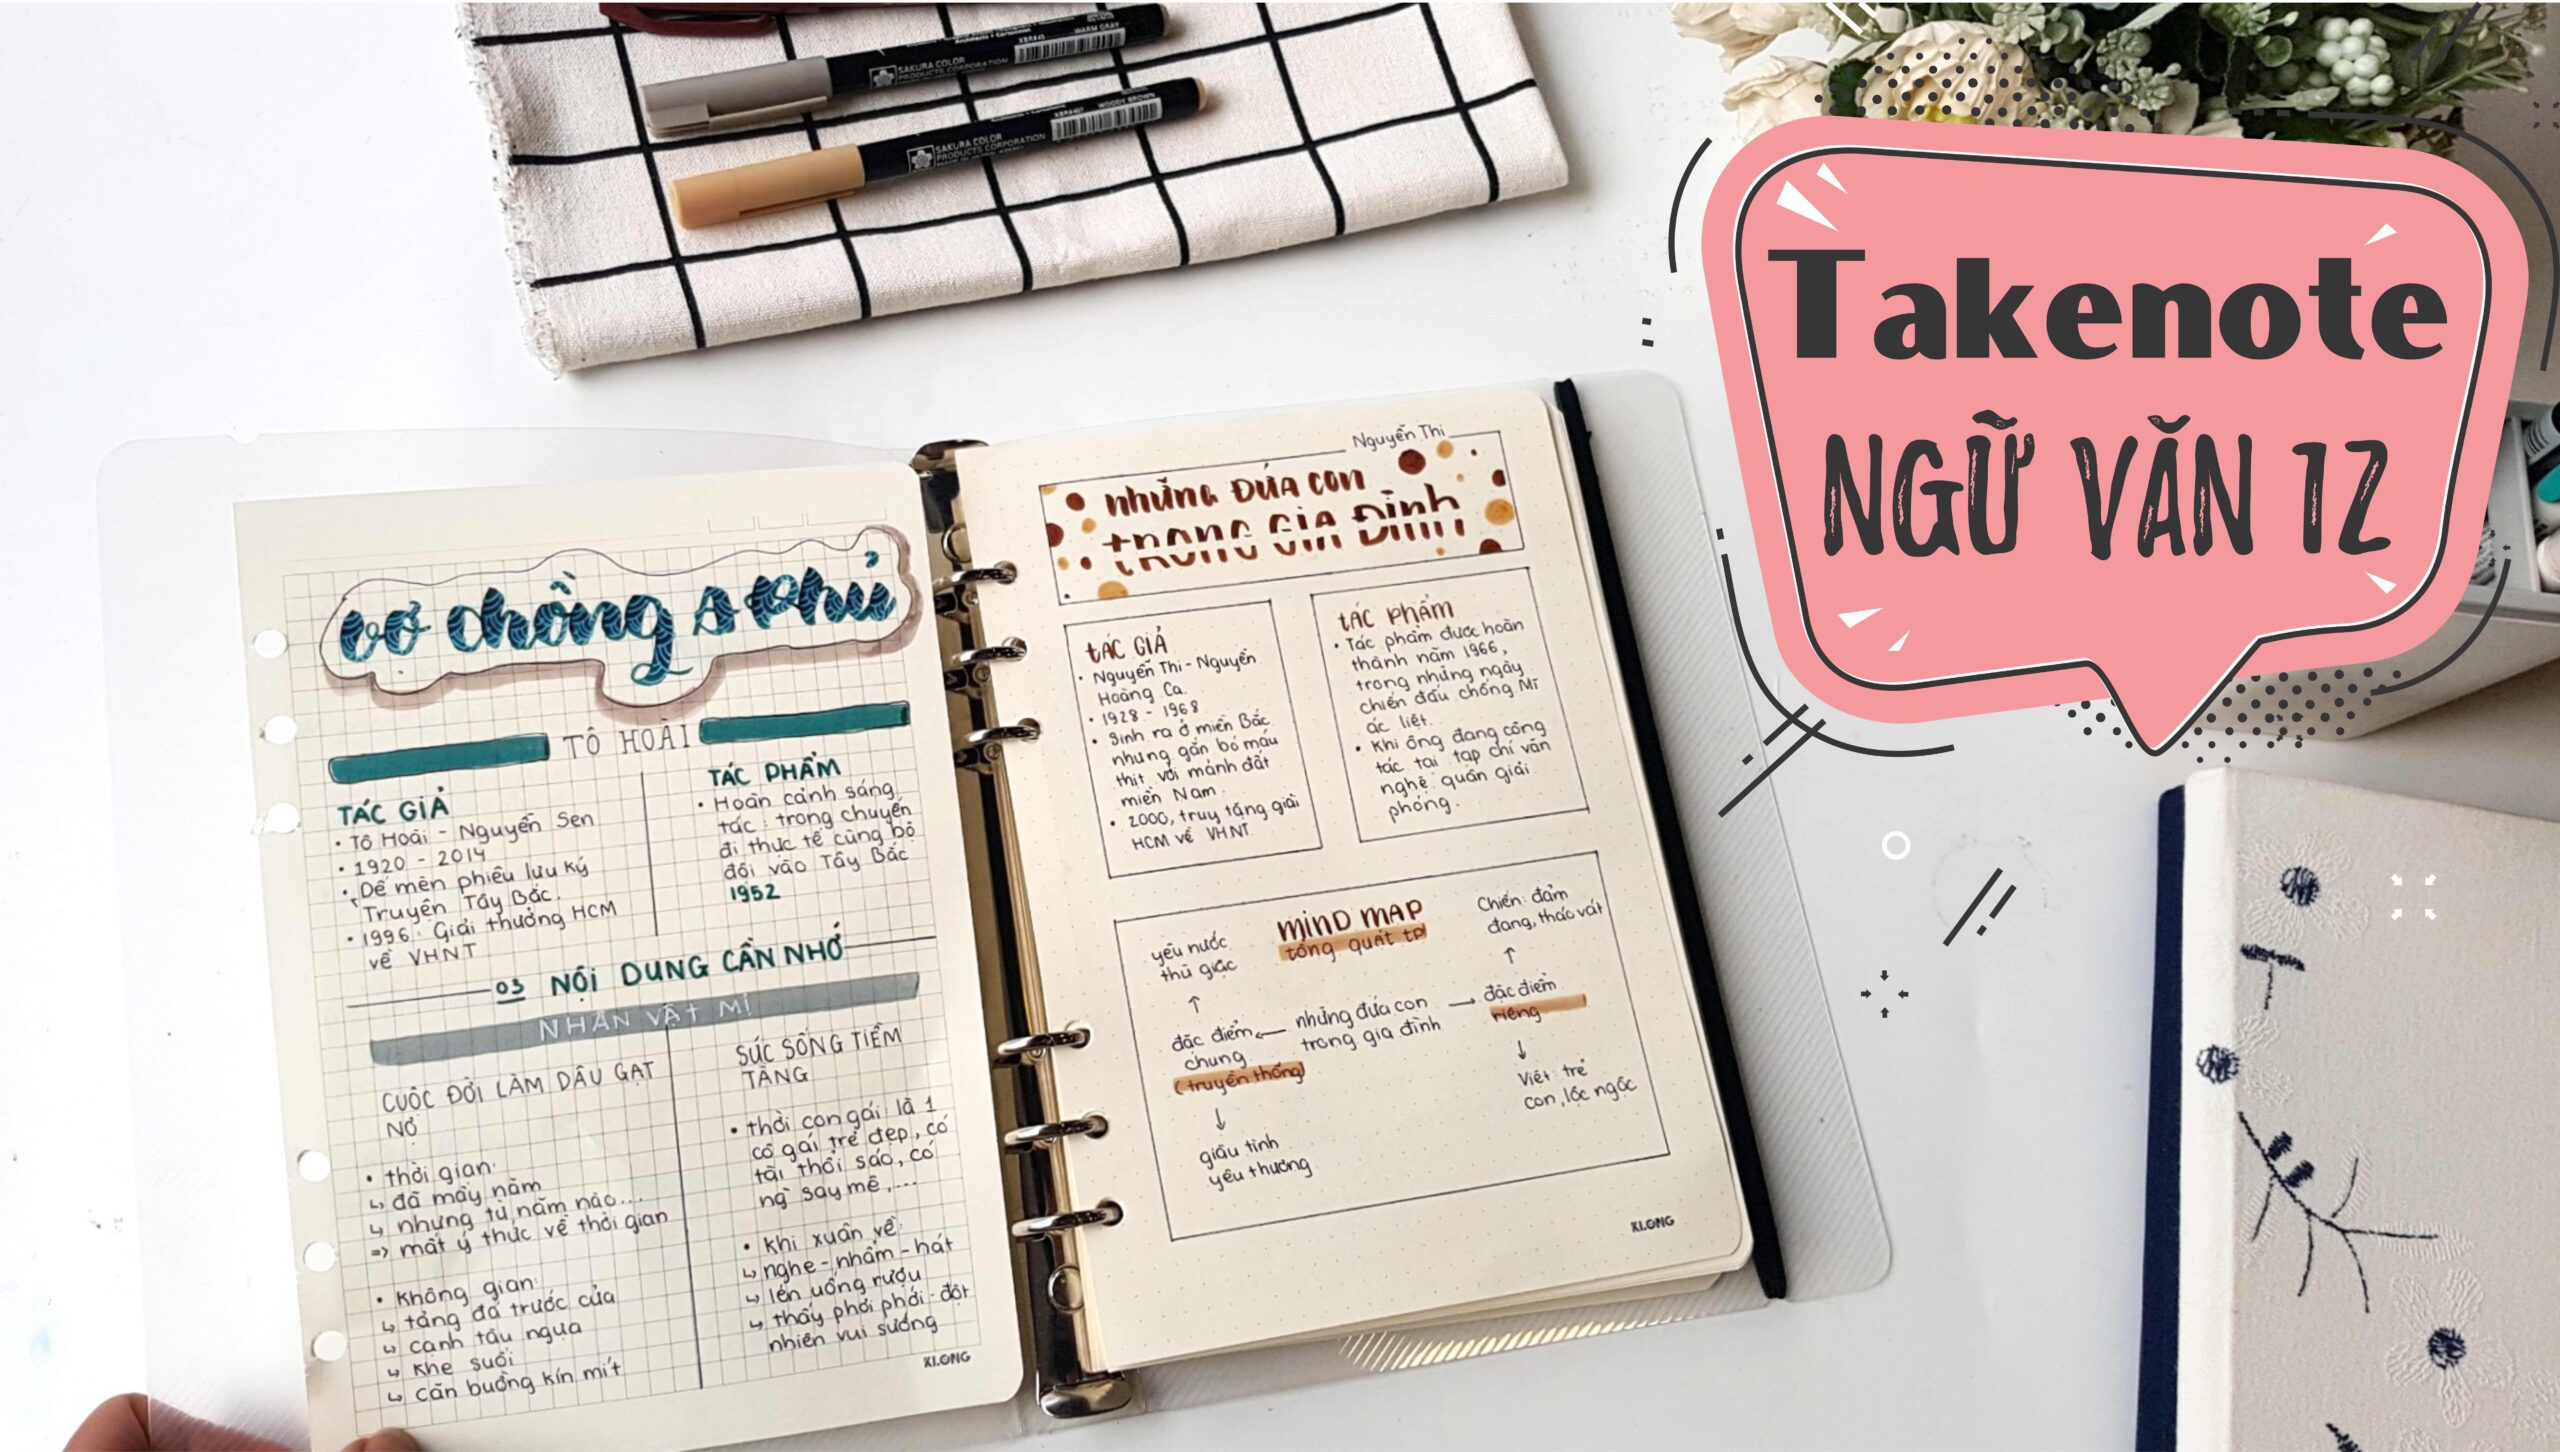 XBR#45 WARM GRAY
SAKURA COLOR
PRODUCTS CORPORATION
WOODY BROWN
SAKURA COLOR
PRODUCTS CORPORATION
Takenote
NGỮ VĂN 12
vợ chồng A Phủ
TÔ HOÀI
TÁC GIẢ
• Tô Hoài - Nguyễn Sen
• 1920 - 2014
• Dế mèn phiêu lưu ký
Truyện Tây Bắc.
• 1996: Giải thưởng HCM
về VHNT
TÁC PHẨM
• Hoàn cảnh sáng
tác: trong chuyến
đi thực tế cùng bộ
đội vào Tây Bắc
1952
03 NỘI DUNG CẦN NHỚ
NHÂN VẬT MỊ
CUỘC ĐỜI LÀM DÂU GẠT
NỢ
• thời gian:
↳ đã mấy năm
↳ nhưng từ năm nào...
=> mất ý thức về thời gian
• không gian:
↳ tảng đá trước cửa
↳ cạnh tàu ngựa
↳ khe suối
↳ căn buồng kín mít
SỨC SỐNG TIỀM
TÀNG
• thời con gái: là 1
cô gái trẻ đẹp, có
tài thổi sáo, có
ng` say mê,...
• khi xuân về:
↳ nghe - nhẩm - hát
↳ lén uống rượu
↳ thấy phơi phới - đột
nhiên vui sướng
KLONG
Nguyễn Thi
những đứa con
trong gia đình
tÁC GIẢ
• Nguyễn Thi - Nguyễn
Hoàng Ca.
• 1928 - 1968
• Sinh ra ở miền Bắc
nhưng gắn bó máu
thịt với mảnh đất
miền Nam.
• 2000, truy tặng giải
HCM về VHNT
tÁC PHẨM
• Tác phẩm được hoàn
thành năm 1966,
trong những ngày
chiến đấu chống Mĩ
ác liệt.
• Khi ông đang công
tác tại tạp chí văn
nghệ quân giải
phóng.
MIND MAP
tổng quát tp
yêu nước
thù giặc
↑
đặc điểm
chung
(truyền thống)
↓
giàu tình
yêu thương
← những đứa con →
trong gia đình
Chiến: đảm
đang, tháo vát
↑
đặc điểm
riêng
↓
Việt: trẻ
con, lộc ngộc
KLONG